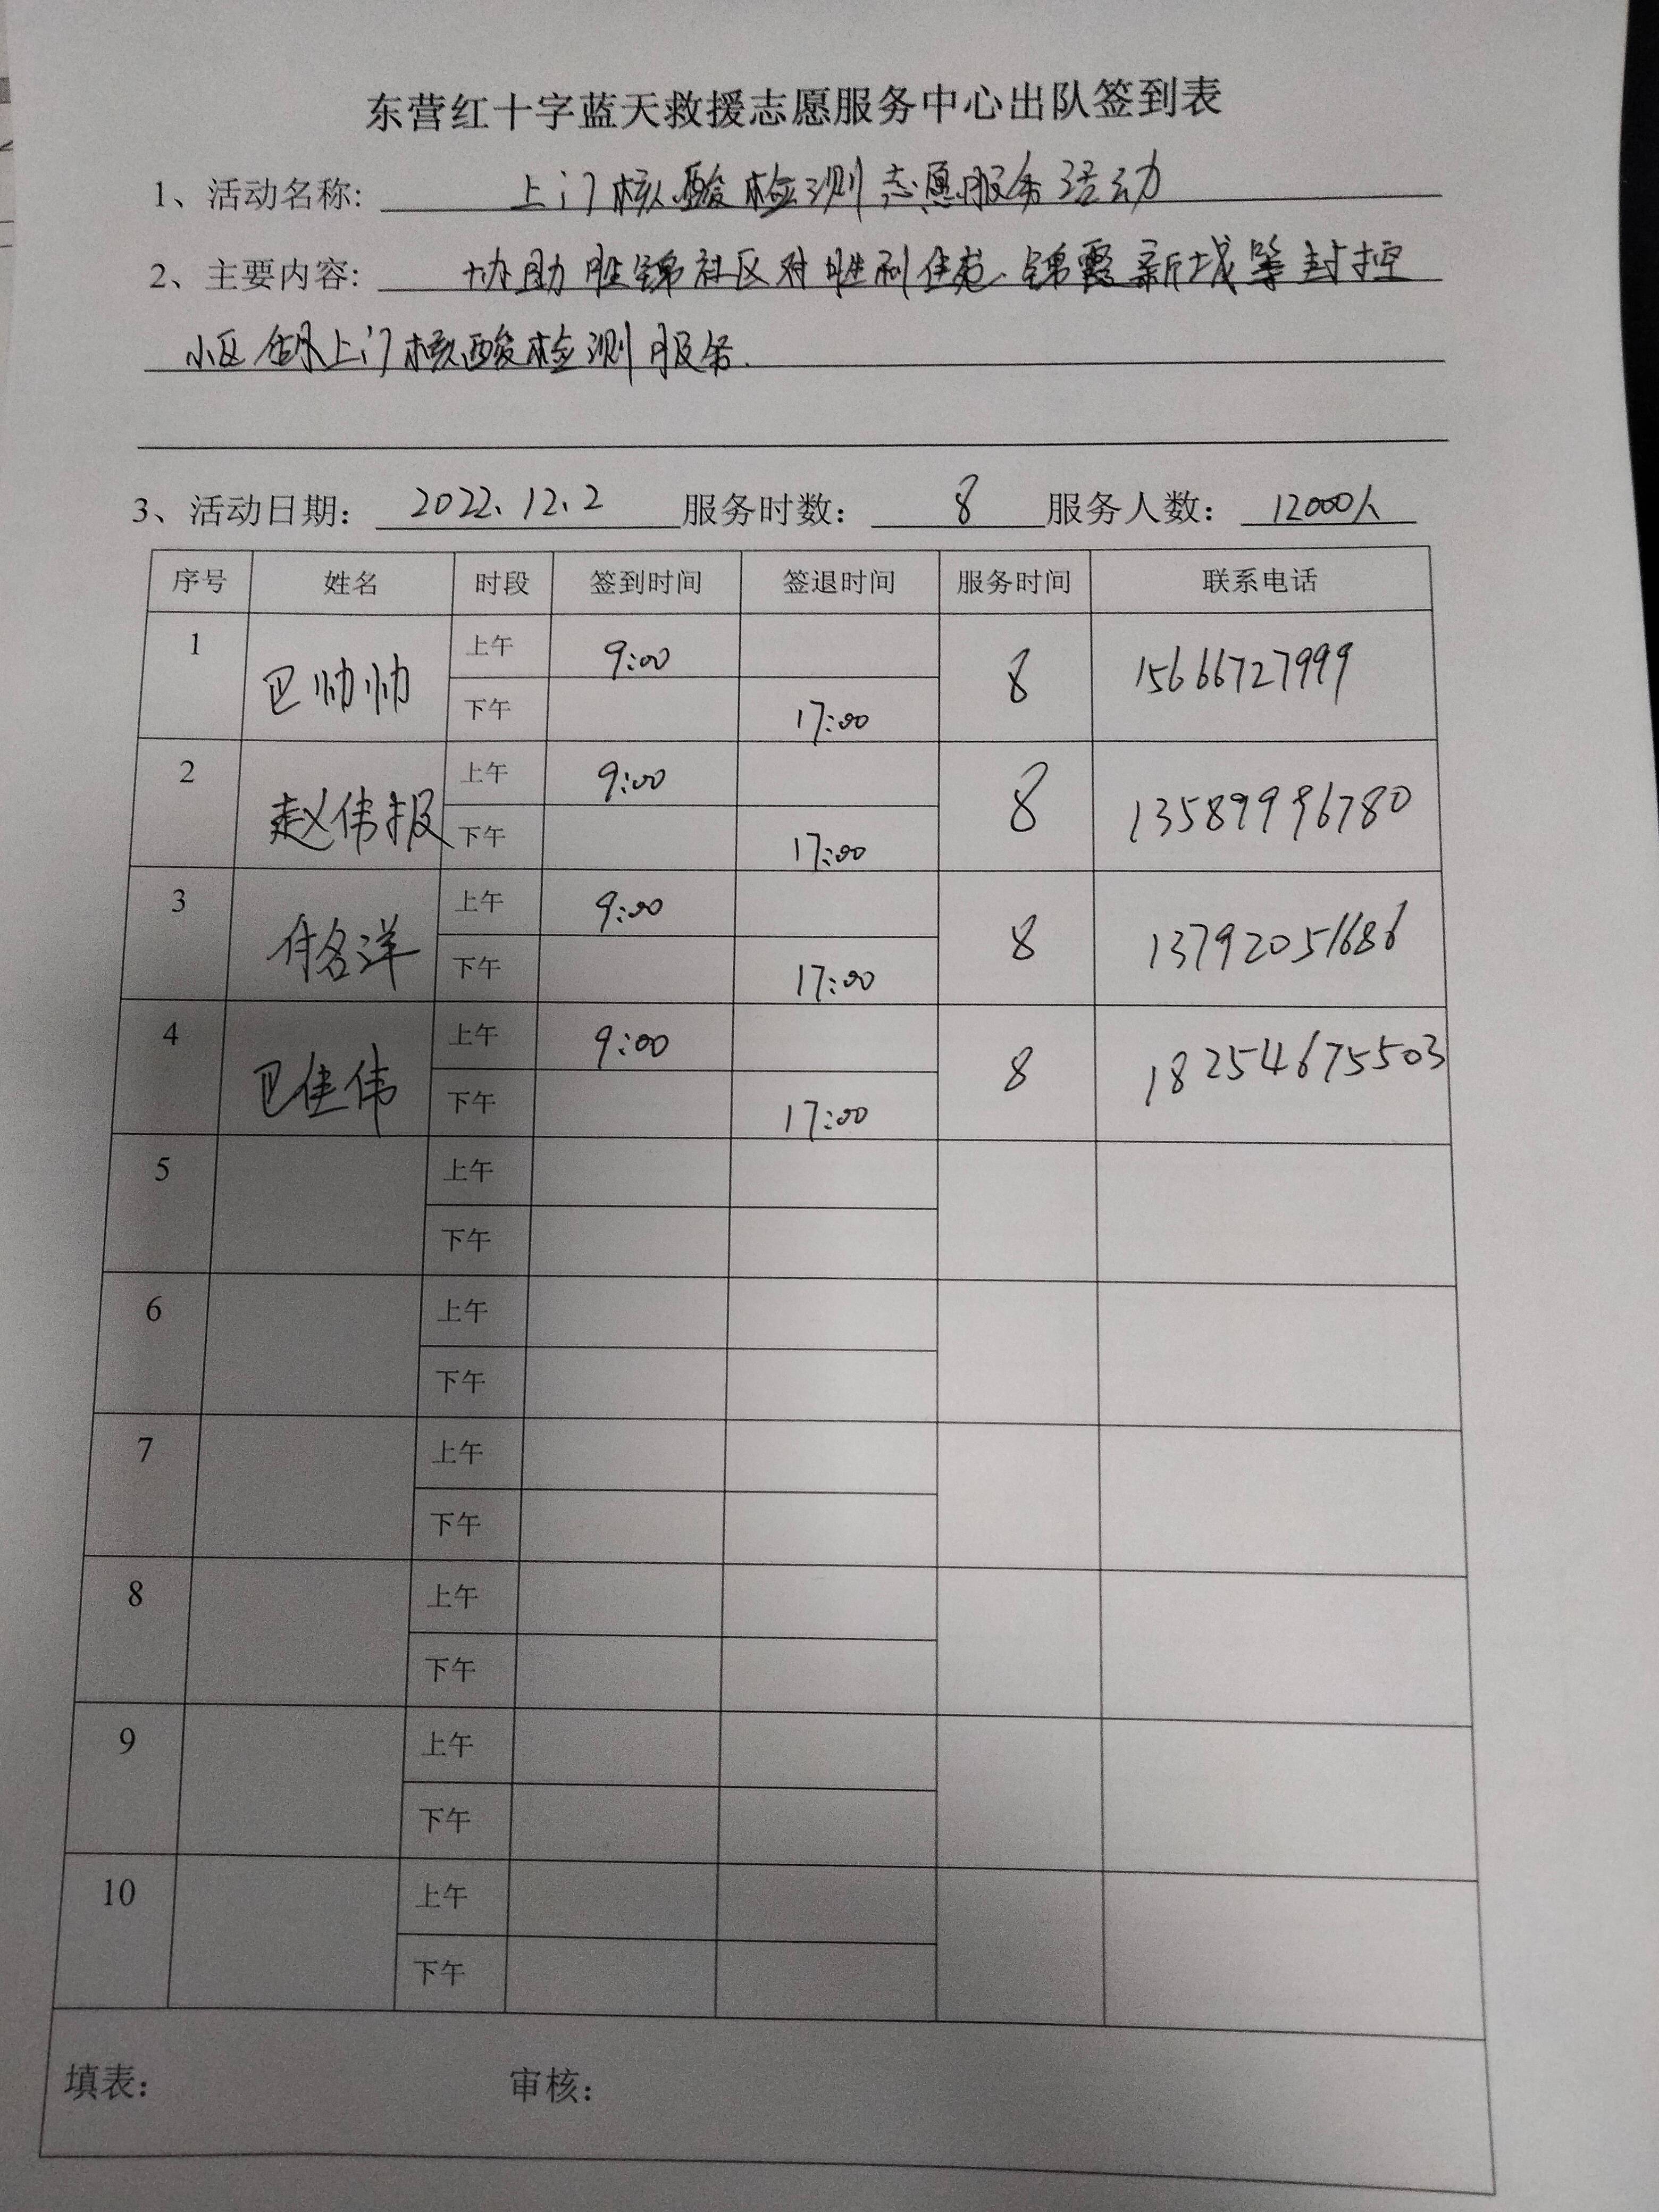 东营红十字蓝天救援志愿服务中心出队签到表
1、活动名称: 上门核酸检测志愿服务活动
2、主要内容: 协助胜锦社区对胜利佳苑、锦霞新城等封控
小区 上门核酸检测服务.
3、活动日期: 2022.12.2 服务时数: 8 服务人数: 12000人
序号 姓名 时段 签到时间 签退时间 服务时间 联系电话
1 巴帅帅 上午 9:00 8 15666727999
下午 17:00
2 赵伟报 上午 9:00 8 13589996780
下午 17:00
3 付名洋 上午 9:00 8 13792051686
下午 17:00
4 巴佳伟 上午 9:00 8 18254675503
下午 17:00
5 上午
下午
6 上午
下午
7 上午
下午
8 上午
下午
9 上午
下午
10 上午
下午
填表: 审核: